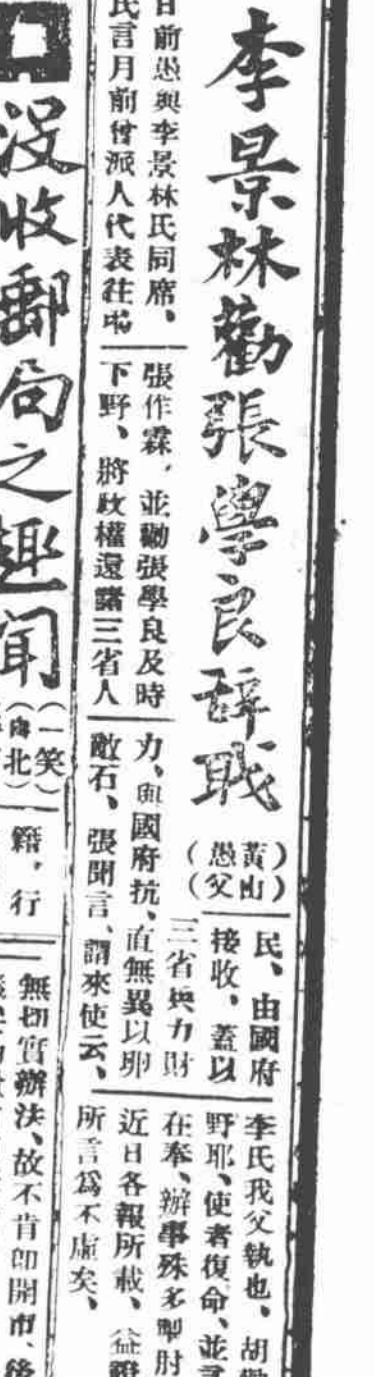 李景林勸張學良辭職
（黃山愚父）
日前愚與李景林氏同席、
氏言月前曾派人代表往
張作霖、並勸張學良及時
下野、將政權還諸三省人
民、由國府
接收、蓋以
三省兵力財
力、與國府抗、直無異以卵
敵石、張聞言、謂來使云、
李氏我父執也、胡
野耶、使者復命、並言
在奉、辦事殊多掣肘
近日各報所載、益證
所言為不虛矣、
沒收郵局之趣聞
（一笑）
北）
籍、行
無切實辦法、故不肯即開市、後